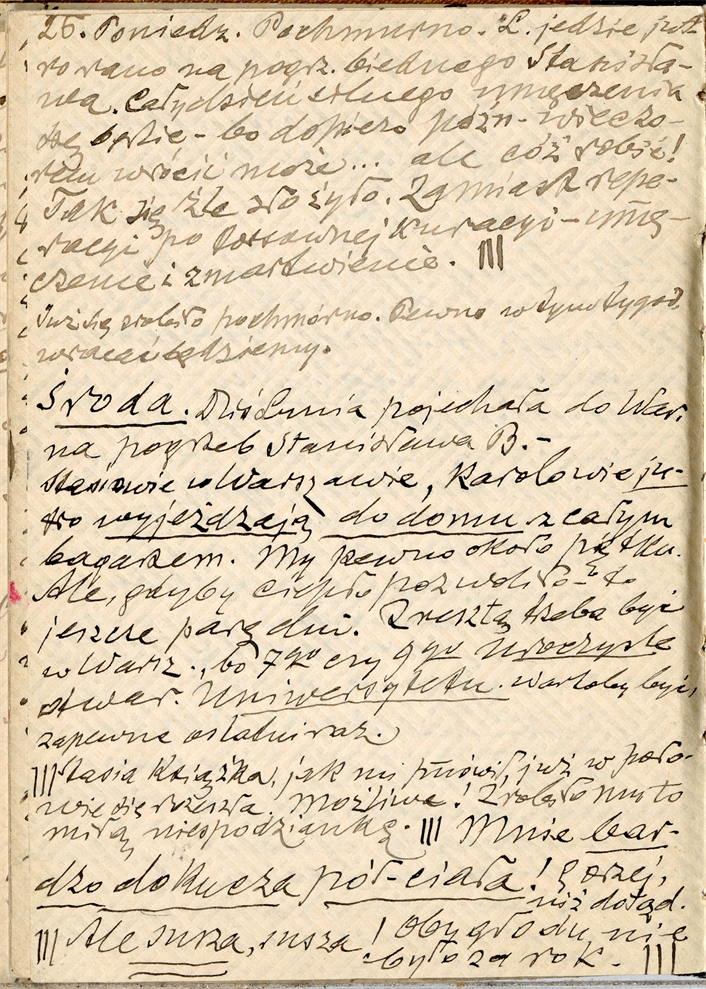 26. Poniedz. Pochmurno. L. jedzie jut-
ro rano na pogrz. biednego Stanisła-
wa. Cały dzień silnego umęczenia
będzie - bo dopiero późn. wieczo-
rem wrócić może... ale cóż robić!
Tak się źle złożyło. Zamiast repe-
racyi po forsownej kuracyi - umę-
czenie i zmartwienie. |||
Już się zrobiło pochmurno. Pewno w tym tygod.
wracać będziemy.
Środa. Dziś Lunia pojechała do War.
na pogrzeb Stanisława B.-
w Warszawie, Karolowie ju-
tro wyjeżdzają do domu z całym
bagażem. My pewno około piątku.
Ale, gdyby ciepło pozwoliło - to
jeszcze parę dni. Zresztą trzeba być
w Warsz., bo 7go czy 9go uroczyste
otwar. Uniwersytetu. Wartoby być,
zapewne ostatni raz.
||| Stasia książka, jak mi mówił, już w poło-
wie się rozeszła. Możliwe! Zrobiło mu to
miłą niespodziankę. ||| Mnie bar-
dzo dokucza pół-ciała! Gorzej,
niż dotąd.
||| Ale susza, susza! Oby głodu nie
było za rok. |||